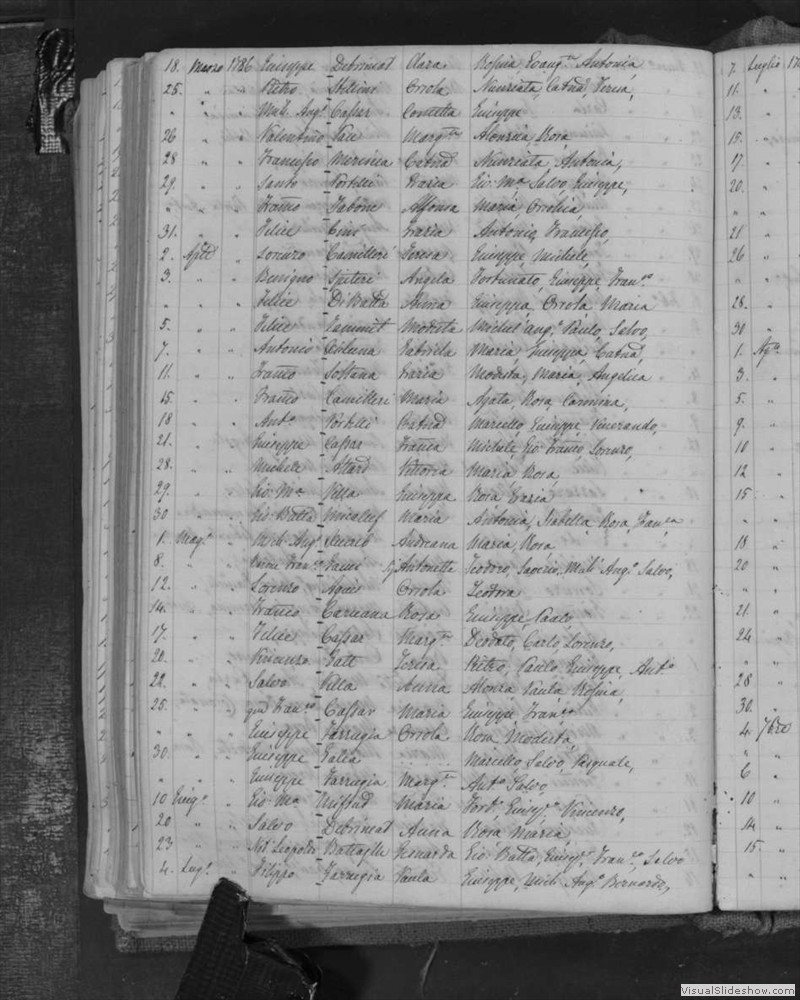 18. Marzo 1786 Giuseppe Debrincat Clara Rosina, Evang.ta Antonia
25. " " Pietro Orsola Nunziata, Catnā, Teresa,
" " " Mich. Ang.o Cassar Cometta Giuseppe
26 " " Valentino Pace Marg.ta Rosa
28 " " Francesco Catnā Nunziata, Antonia,
29. " " Santo Portelli Grazia Gio: Ma Salvo, Giuseppe,
" " " Franco Tabone Alfonsa Maria, Orsolica
31. " " Felice Cini Grazia Antonio, Francesco,
2. Aple " Lorenzo Camilleri Teresa Giuseppe, Michele,
3. " " Benigno Spiteri Angela Fortunato, Giuseppe, Fran.co
" " " Felice DiBatta Anna Giuseppa, Orsola, Maria
5. " " Felice Tammut Modesta Michel'ang.o Paulo, Salvo,
7. " " Antonio Gabriela Maria, Giuseppa, Catnā,
11. " " Franco Soltana Grazia Modesta, Maria, Angelica
15. " " Franco Camilleri Maria Agata, Rosa, Carmina,
18 " " Ant.o Portelli Catnā Marcello, Giuseppe, Vinerando,
21. " " Giuseppe Cassar Franca Michele, Gio: Franco, Lorenzo,
28. " " Michele Attard Vittoria Maria, Rosa,
29. " " Gio: Ma Vella Giuseppa Rosa, Grazia
30 " " Gio: Batta Micallef Maria Antonia, Isabella, Rosa, Fran.ca
1. Mag.o " Mich: Ang.o Andreana Maria, Rosa
8. " " Fran.co Antonetta Teodoro, Saverio, Mich: Ang.o Salvo,
12. " " Lorenzo Agius Orsola Teodora
14. " " Franco Caruana Rosa Giuseppe, Paolo,
17. " " Felice Cassar Marg.ta Deodato, Carlo, Lorenzo,
20. " " Vincenzo Gatt Teresa Pietro, Paulo, Giuseppe, Ant.o
22. " " Salvo Vella Anna Paula, Rosina,
25. " " Fran.co Cassar Maria Giuseppe, Fran.co
" " " Giuseppe Farrugia Orsola Rosa, Modesta,
30. " " Giuseppe Galea Marcello, Salvo, Pasquale,
" " " Giuseppe Farrugia Marg.ta Ant.o Salvo
10 Giug.o " Gio: Ma Mifsud Maria Fort.o, Vincenzo,
20 " " Salvo Debrincat Anna Rosa, Maria
23 " " Leopoldo Leonarda Gio: Batta, Fran.co, Salvo
4. Lug.o " Filippo Farrugia Paula Giuseppe, Mich: Ang.o Bernardo,
7. Luglio
11. "
13. "
15. "
17. "
20. "
" "
21 "
26 "
28. "
30 "
1. Ag.o
3. "
5. "
9. "
10 "
12 "
15 "
" "
18 "
20 "
" "
21. "
24 "
" "
28 "
30. "
4. 7bre
" "
6 "
10 "
14 "
15. "
" "
VisualSlideshow.com